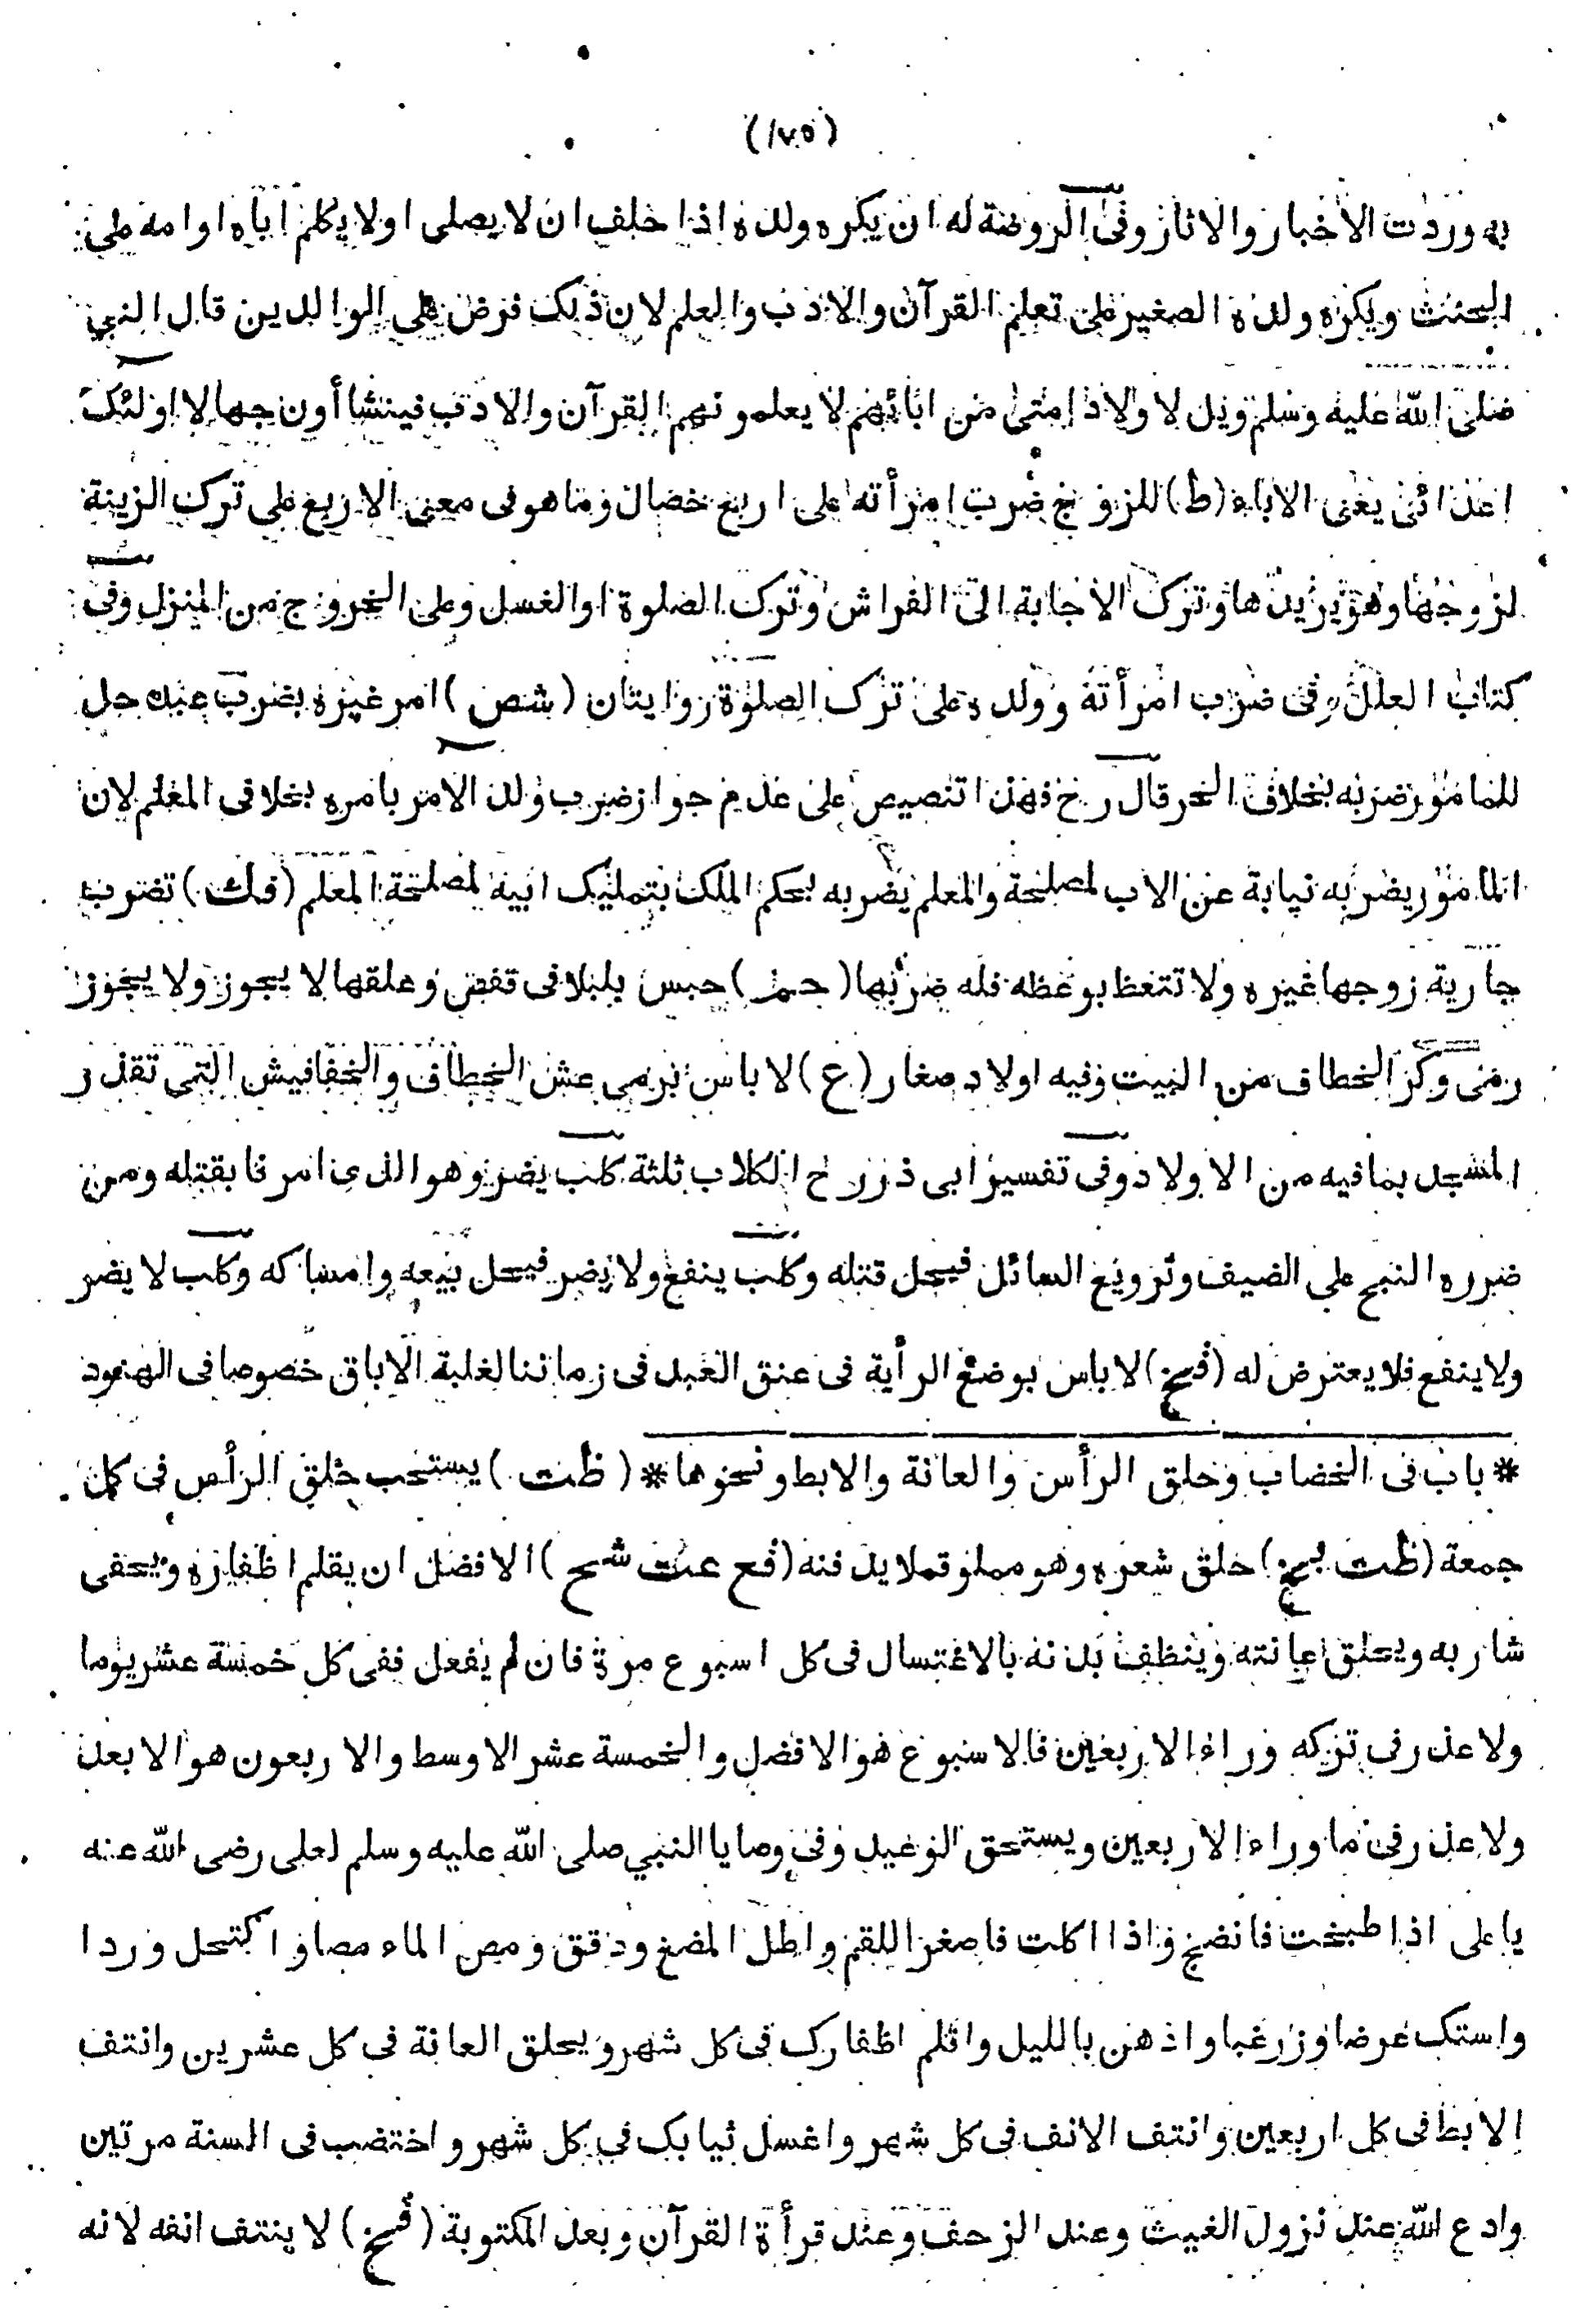 (١٧٥)
به وردت الاخبار والاثار وفى الروضة له ان يكره ولده اذا حلف ان لا يصلى اولا يكلم اباه اوامه على
الحنث ويكره ولده الصغير على تعلم القرآن والادب والعلم لان ذلك فرض على الوالدين قال النبي
صلى الله عليه وسلم ويل لاولاد امتى من ابائهم لا يعلمونهم القرآن والادب فينشأون جهالا اولئك
اعدائى يعنى الاباء (ط) للزوج ضرب امرأته على اربع خصال وما هو فى معنى الاربع على ترك الزينة
لزوجها وهو يريدها وترك الاجابة الى الفراش وترك الصلوة او الغسل وعلى الخروج من المنزل وفى
كتاب العلل وفى ضرب امرأته وولده على ترك الصلوة روايتان (شص) امر غيره بضرب عبده حل
للمامور ضربه بخلاف الحر قال رح فهذا تنصيص على عدم جواز ضرب ولد الامر بامره بخلاف المعلم لان
المامور يضربه نيابة عن الاب لمصلحة والمعلم يضربه بحكم الملك بتمليك ابيه لمصلحة المعلم (فك) تضرب
جارية زوجها غيره ولا تتعظ بوعظه فله ضربها (حم) حبس بلبلا فى قفص وعلقها لا يجوز ولا يجوز
رمى وكر الخطاف من البيت وفيه اولاد صغار (ع) لا باس برمى عش الخطاف والخفافيش التى تقذر
المسجد بما فيه من الاولاد وفى تفسير ابى ذر رح الكلاب ثلثة كلب يضر وهو الذى امرنا بقتله ومن
ضرره النبح على الضيف وترويع السائل فيحل قتله وكلب ينفع ولا يضر فيحل بيعه وامساكه وكلب لا يضر
ولا ينفع فلا يعترض له (فسخ) لا باس بوضع الرأية فى عنق العبد فى زماننا لغلبة الاباق خصوصا فى الهنود
* باب فى الخضاب وحلق الرأس والعانة والابط ونحوها * (ظت) يستحب حلق الرأس فى كل
جمعة (ظت بخ) حلق شعره وهو مملو قملا يدفنه (فع عت شح) الافضل ان يقلم اظفاره ويحفى
شاربه ويحلق عانته وينظف بدنه بالاغتسال فى كل اسبوع مرة فان لم يفعل ففى كل خمسة عشر يوما
ولا عذر فى تركه وراء الاربعين فالاسبوع هو الافضل والخمسة عشر الاوسط والاربعون هو الابعد
ولا عذر فى ما وراء الاربعين ويستحق الوعيد وفى وصايا النبي صلى الله عليه وسلم لعلى رضى الله عنه
يا على اذا طبخت فانضج واذا اكلت فاصغر اللقم واطل المضغ ودقق ومص الماء مصا واكتحل وردا
واستك عرضا وزر غبا وادهن بالليل واقلم اظفارك فى كل شهر ويحلق العانة فى كل عشرين وانتف
الابط فى كل اربعين وانتف الانف فى كل شهر واغسل ثيابك فى كل شهر واختضب فى السنة مرتين
وادع الله عند نزول الغيث وعند الزحف وعند قرأة القرآن وبعد المكتوبة (فسخ) لا ينتف انفه لانه